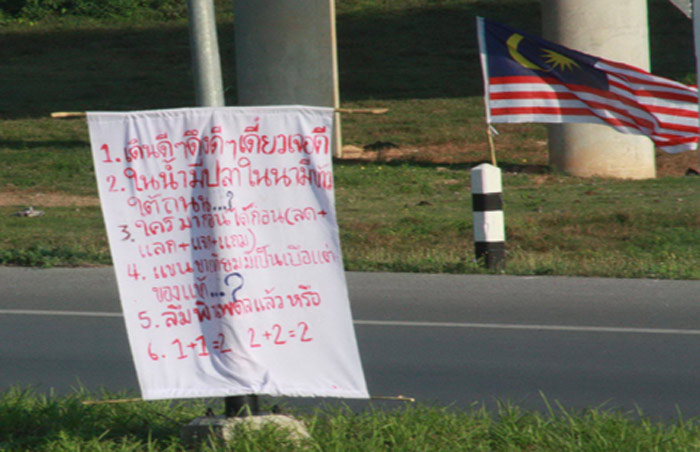 1. เดินดีๆดึงดีๆเดี๋ยวเจอดี
2. ในน้ำมีปลาในนามีข้าว
ใต้ถนน...?
3. ใครมาก่อนได้ก่อน(ลด+
แลก+แจก+แถม)
4. แขนขาเทียมมีเป็นเบือแต่
ของแท้...?
5. ลืม แล้วหรือ
6. 1+1=2 2+2=2